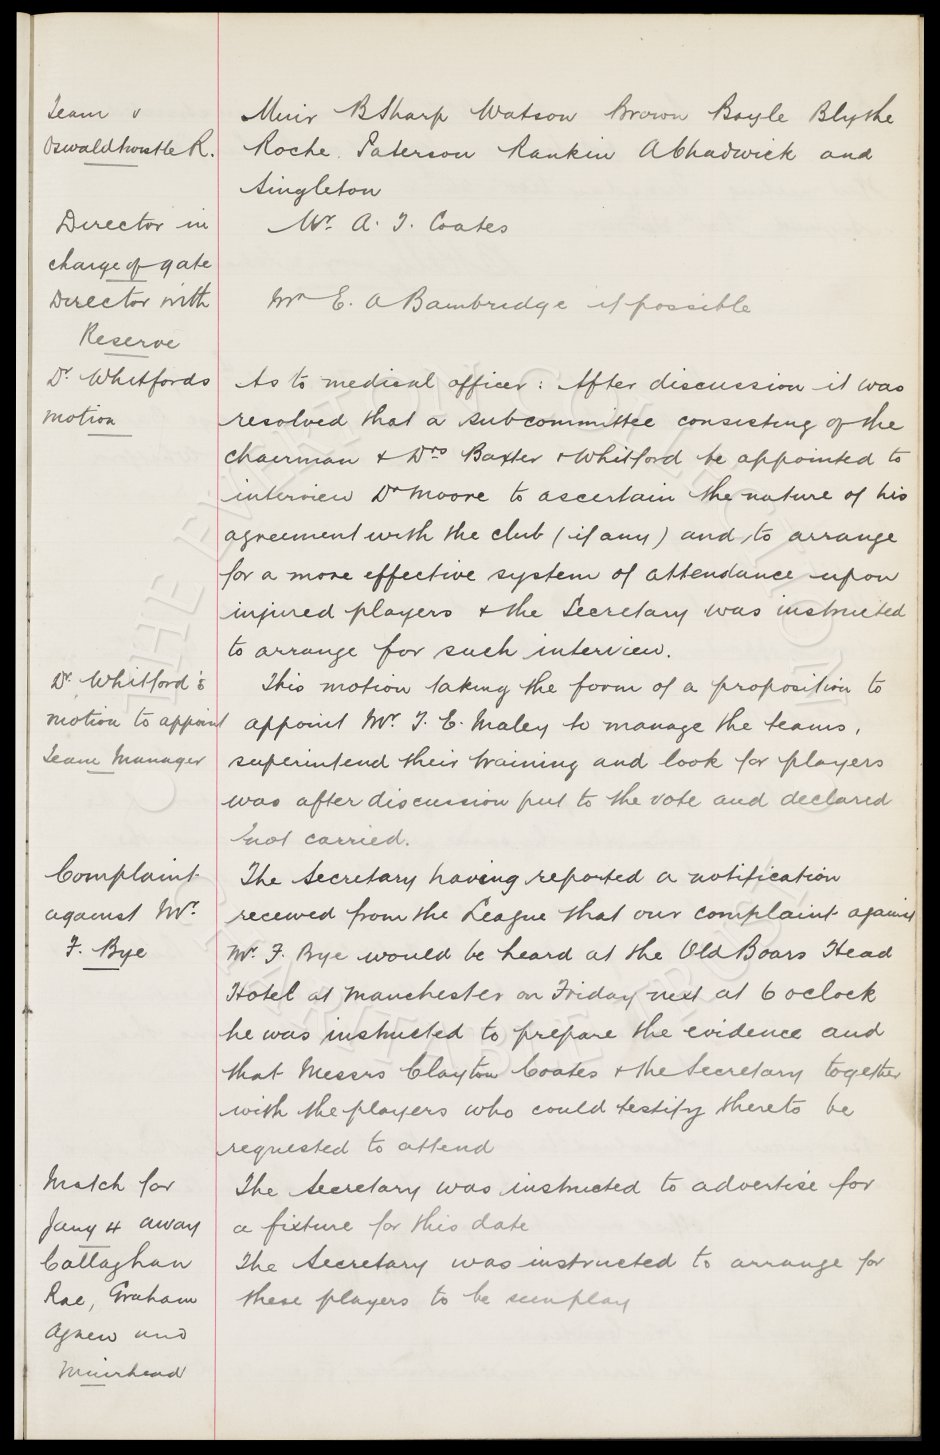 Team v
Oswaldtwistle R.
Muir B Sharp Watson Brown Boyle Blythe
Roche. Paterson Rankin A Chadwick and
Singleton
Director in
charge of gate
Mr. A. T. Coates
Director with
Reserve
Mr E. A Bambridge if possible
Dr. Whitfords
motion
As to medical officer: After discussion it was
resolved that a subcommittee consisting of the
chairman & Drs Baxter & Whitford be appointed to
interview Dr Moore to ascertain the nature of his
agreement with the club (if any) and to arrange
for a more effective system of attendance upon
injured players & the Secretary was instructed
to arrange for such interview.
Dr. Whitford's
motion to appoint
Team Manager
This motion taking the form of a proposition to
appoint Mr. T. E. Maley to manage the teams,
superintend their training and look for players
was after discussion put to the vote and declared
not carried.
Complaint
against Mr.
F. Bye
The Secretary having reported a notification
received from the League that our complaint against
Mr. F. Bye would be heard at the Old Boars Head
Hotel at Manchester on Friday next at 6 oclock
he was instructed to prepare the evidence and
that Messrs Clayton Coates & the Secretary together
with the players who could testify thereto be
requested to attend
Match for
Jany 4 away
The Secretary was instructed to advertise for
a fixture for this date
Callaghan
Rae, Graham
Agnew and
Muirhead
The Secretary was instructed to arrange for
these players to be seen play
THE EVERTON COLLECTION
CHARITABLE TRUST